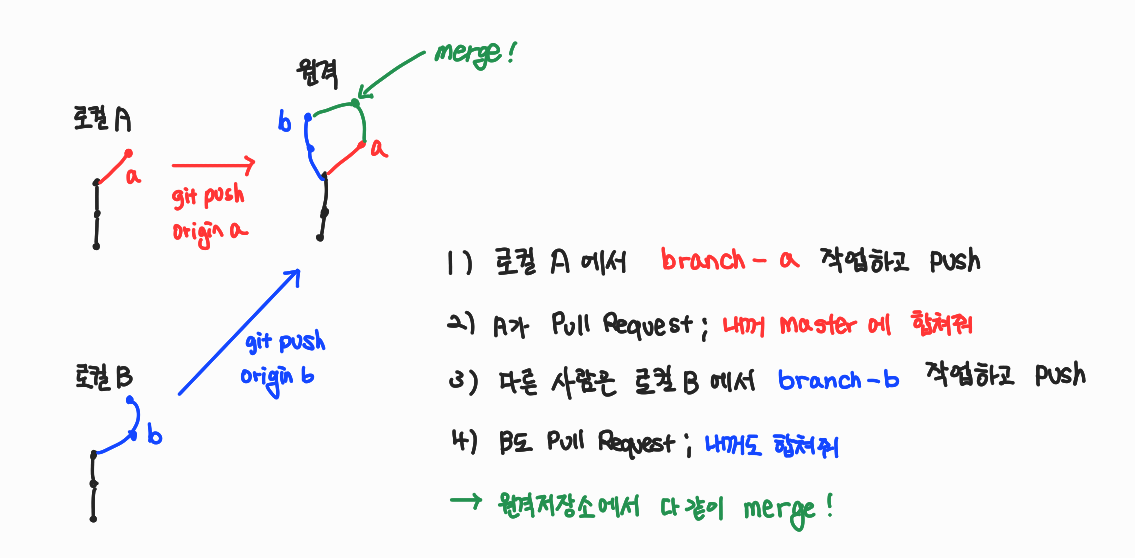 merge!
원격
로컬 A
b
a
a
git push
origin a
git push
origin b
로컬 B
b
1) 로컬 A 에서 branch-a 작업하고 push
2) A가 Pull Request; 내꺼 master 에 합쳐줘
3) 다른 사람은 로컬 B 에서 branch-b 작업하고 push
4) B도 Pull Request; 내꺼도 합쳐줘
→ 원격저장소에서 다 같이 merge!